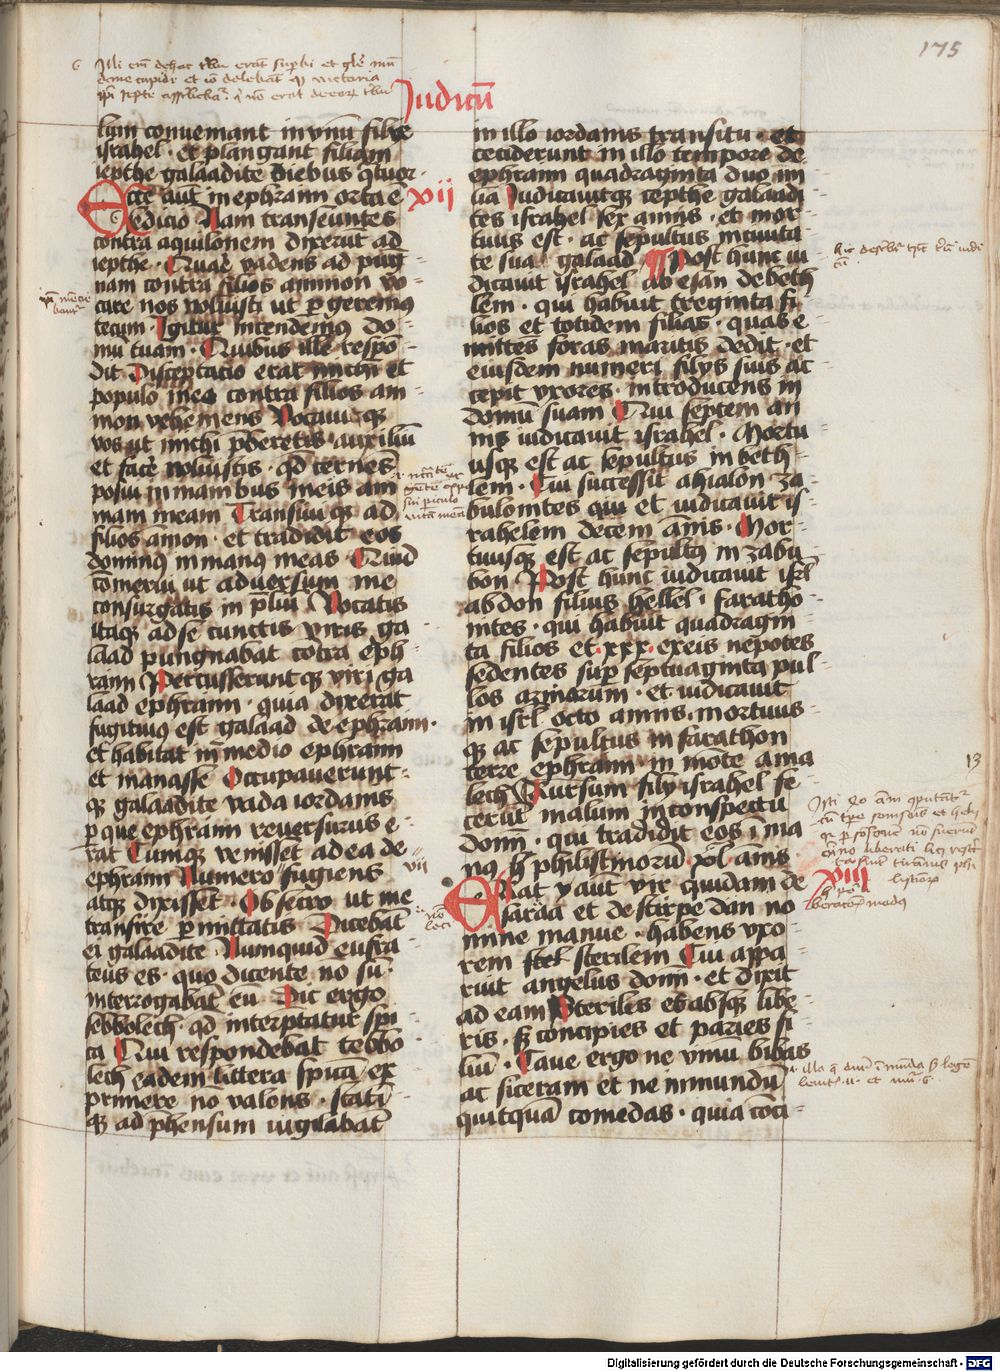 175
Iudicū
lum conuemant in vnū filie
israhel · et plangant filiam
iepthe galaadite diebus q̄tuor ·
Ecce aut̄ in ephraim orta ē xii
sedicio Nam transeūntes
contra aquilonem dixerūt ad
iepthe · Quare vadens ad pug
nam contra filios ammon vo
care nos noluisti ut pergeremus
tecum · Igitur intendemus do
mū tuam · Quibus ille respō
dit Disceptatio erat michi et
populo meo contra filios am
mon vehemens Vocaui q̄
vos ut michi p̄beretis auxiliū
et facē noluistis · qd̄ cernēs
posui in manibus meis ani
mam meam Transiui q̄ ad
filios amon · et tradidit eos
dominus in manus meas Quid
comerui ut adversum me
consurgatis in p̄liū Vocatis
itaq̄ ad se cunctis viris ga
laad pungnabat cōtra eph
raim Percusserunt q̄ viri ga
laad ephraim · quia dixerat
fugitiuus est galaad de ephraim ·
et habitat in medio ephraim
et manasse Occupauerunt
q̄ galaadite vada iordanis
per que ephraim reuersurus e
rat Cumq̄ venisset ad ea de
ephraim Numero fugiens vii
atq̄ dixisset · Obsecro ut me
transire permittatis Dicebāt
ei galaadite Numquid eufra
teus es · quo dicente nō sū ·
interrogabāt eū Dic ergo
sebbolech · qd̄ interp̄tatur spi
ca Qui respondebat tebbo
lech eadem littera spicā ex
primere nō valens · stati
q̄ ad p̄hensum iugulabāt
in illo iordanis transitu · et
ceciderunt in illo tempore de
ephraim quadraginta duo mi
lia Iudicauitq̄ iepthe galaadi
tes israhel sex annis · et mor
tuus est · ac sepultus in ciuita
te sua galaad Post hunc iu
dicauit israhel abesan de beth
lem · qui habuit treginta fi
lios et totidem filias · quas e
mittes foras maritis dedit · et
eiusdem numeri filys suis ac
cepit vxores · introducens in
domū suam Qui septem an
nis iudicauit israhel · Mortu
usq̄ est ac sepultus in beth
lem · Cui successit ahialon za
bulonites qui et iudicauit is
rahelem decem annis · Mor
tuusq̄ est ac sepultus in zabu
lon Post hunc iudicauit isrl
abdon filius hellel · faratho
nites · qui habuit quadragin
ta filios et · xxx · ex eis nepotes
sedentes super septuaginta pul
los azinorum · et iudicauit
in isrl octo annis · mortuus
q̄ ac sepultus in farathon
terre ephraim in mōte ama
lech Rursum fily israhel fe
cerūt malum in conspectu
domī · qui tradidit eos ī ma
nus philistinorū · xl · annis
Erat aut̄ vir quidam de xiii
saraa et de stirpe dan no
mine manue · habens vxo
rem sterilem Cui appa
ruit angelus domī · et dixit
ad eam Steriles es absq̄ libe
ris · s̄ concipies et paries fi
liū · Caue ergo ne vinū bibas
ac siceram et ne inmundū
quitquā comedas · quia cōci
13
Digitalisierung gefördert durch die Deutsche Forschungsgemeinschaft - DFG